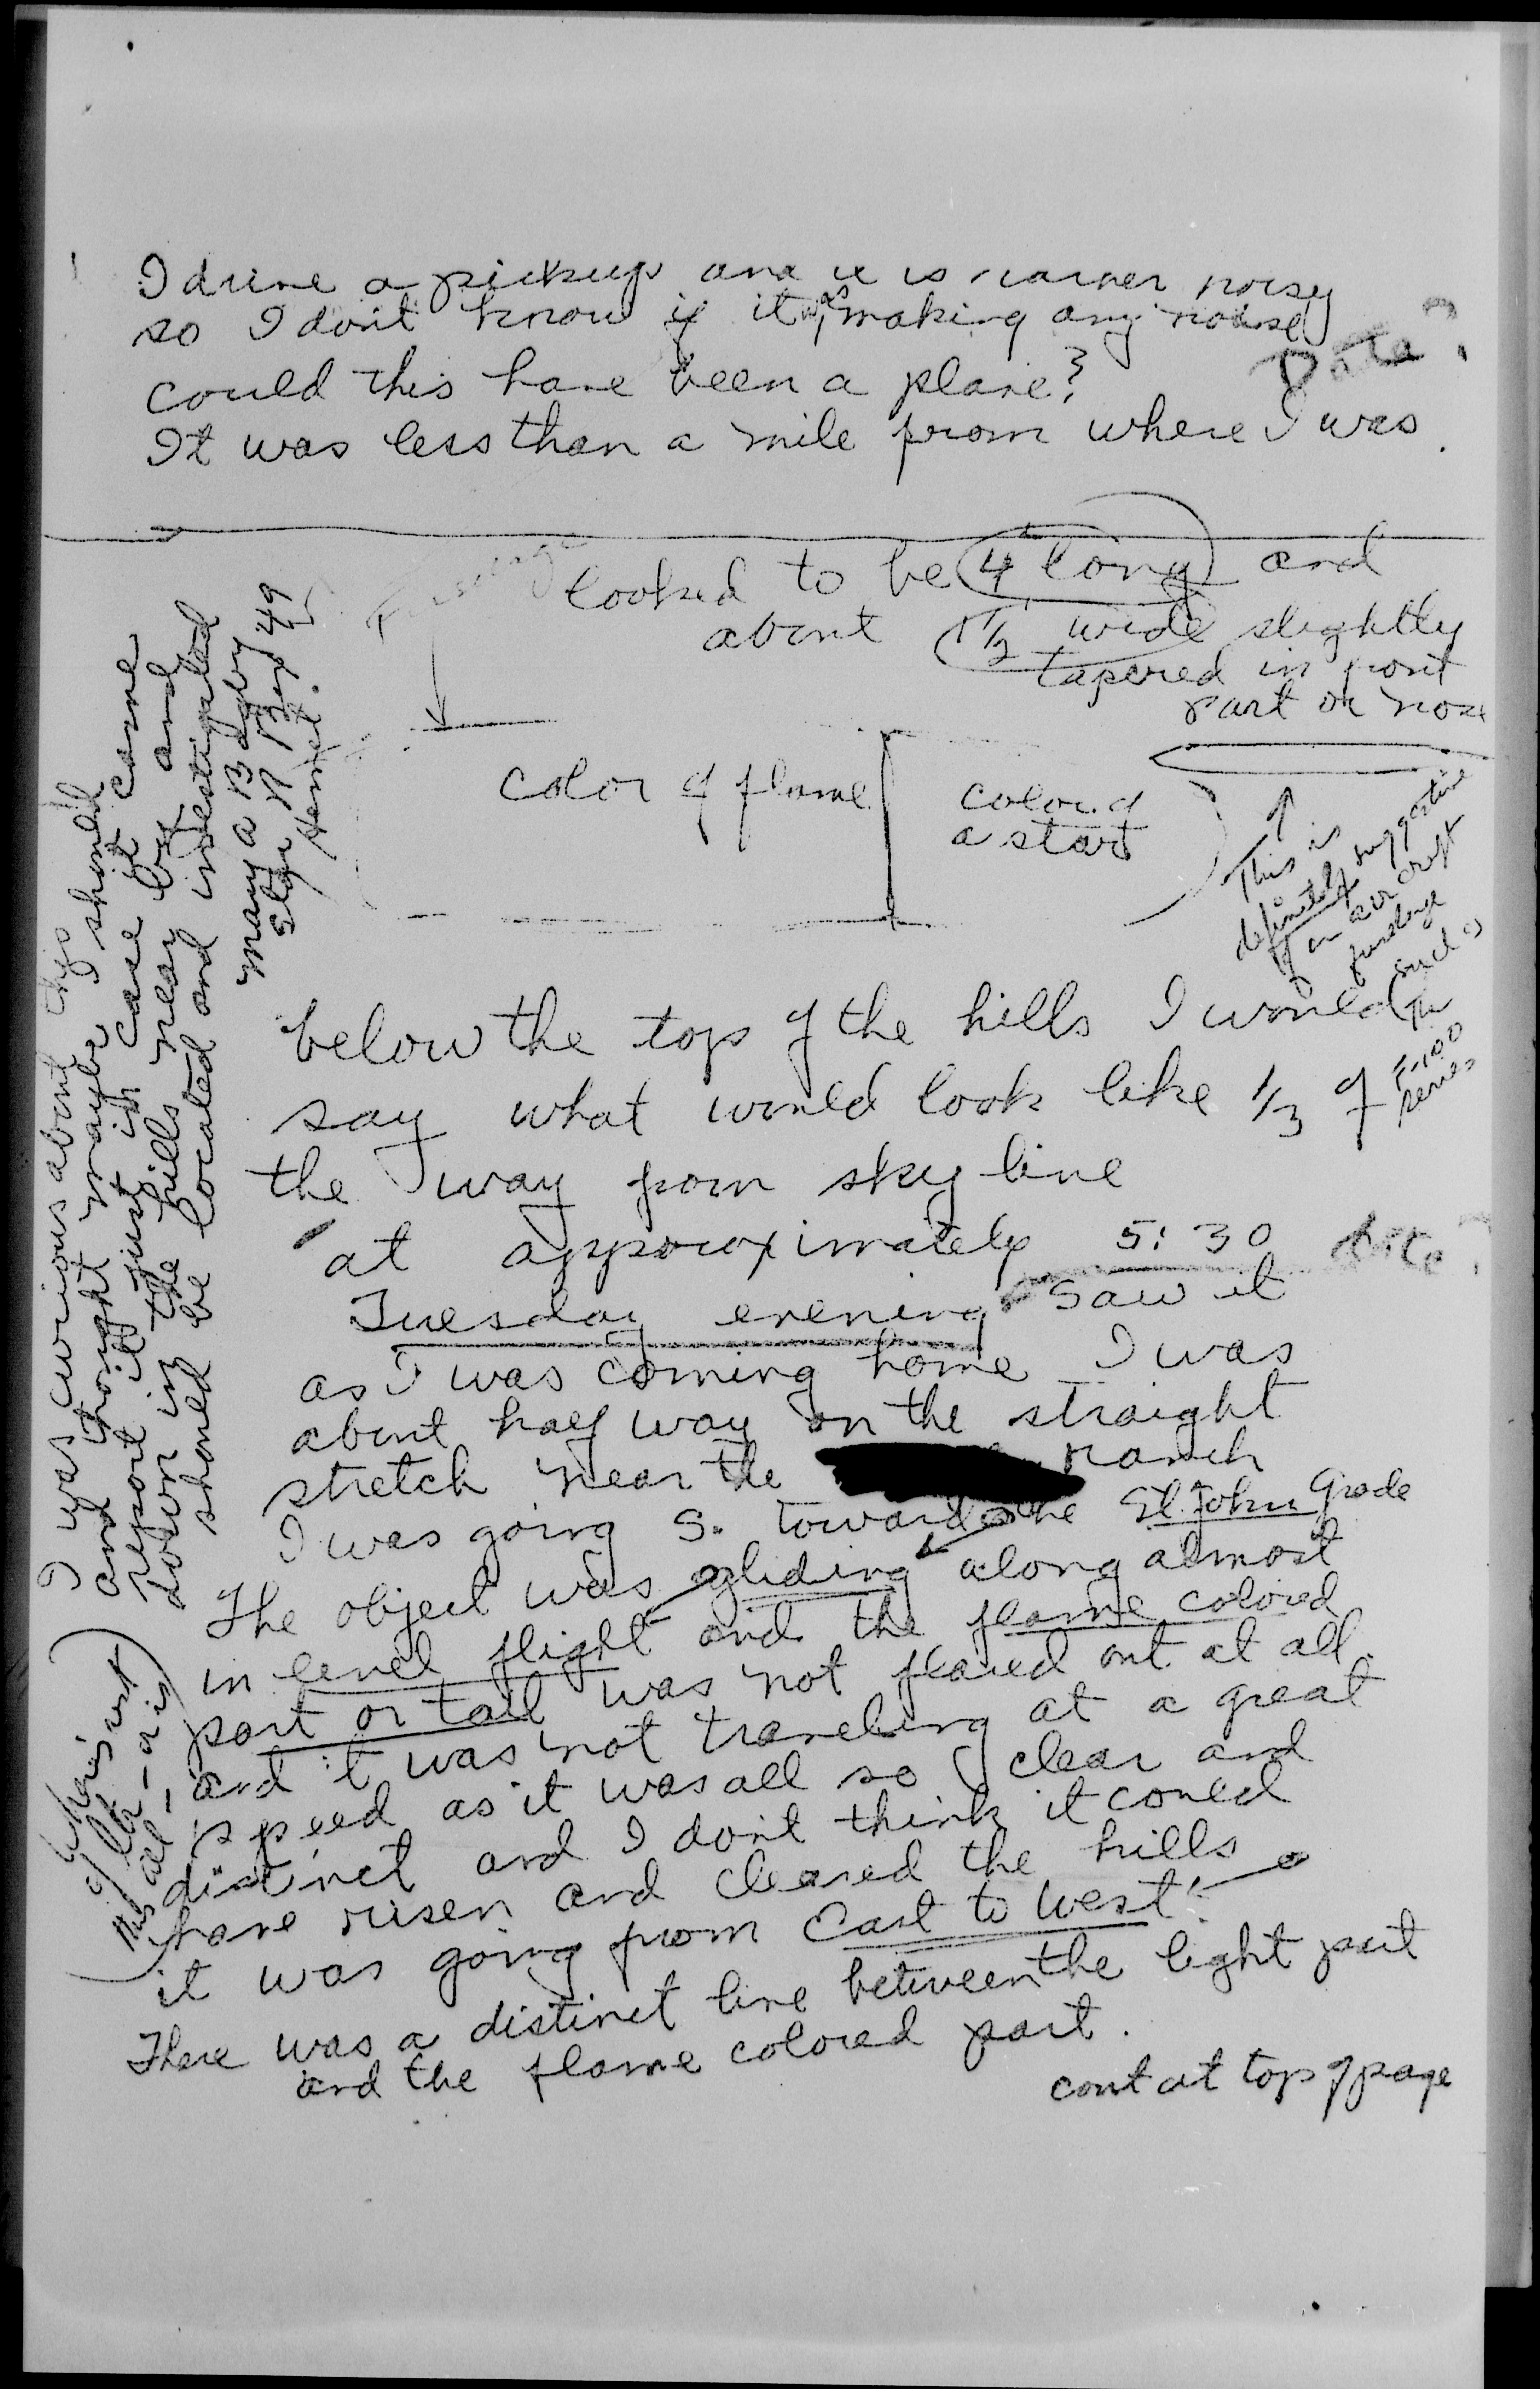 I drive a pickup and it is rather noisy
so I dont know if it was making any noise
Date?
could this have been a plane?
It was less than a mile from where I was.
Fuselage
looked to be 4' long and
about 1 1/2 wide slightly
tapered in front
part or nose
color of flame
color of
a start
This is
definitely suggestive
of an aircraft
fuselage
such as
The
F-100
series
below the top of the hills I would
say what would look like 1/3 of
the way from sky line
at approximately 5:30
date?
Tuesday evening saw it
as I was coming home I was
about half way on the straight
stretch near the ranch
I was going S. toward the St. John Grade
The object was gliding along almost
in level flight and the flame colored
part or tail was not flared out at all.
and it was not traveling at a great
speed as it was all so clear and
distinct and I dont think it could
have risen and cleared the hills
it was going from East to West.
There was a distinct line between the light part
and the flame colored part.
cont at top of page
I was curious about this
and thought maybe I should
report it just in case it came
down in the hills near by and
should be located and investigated
Mary a
Star R Box 49